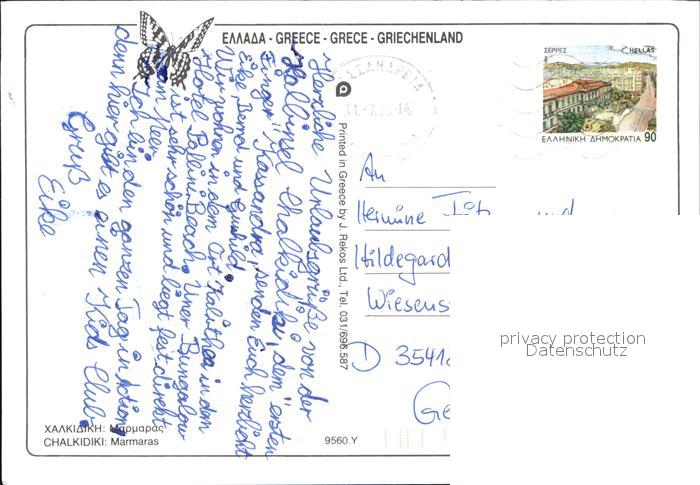 ΕΛΛΑΔΑ - GREECE - GRECE - GRIECHENLAND
ΣΕΡΡΕΣ HELLAS
ΕΛΛΗΝΙΚΗ ΔΗΜΟΚΡΑΤΙΑ 90
Herzliche Urlaubsgrüße von der
Halbinsel Chalkidiki, dem "ersten
Finger" Kassandra, senden Euch herzlichst
Eike, Bernd und Gunhild.
Wir wohnen in dem Ort Kalithea in dem
Hotel Pallini Beach. Unser Bungalow
ist sehr schön und liegt fast direkt
am Meer.
Ich bin den ganzen Tag in Action,
denn hier gibt es einen Kids Club.
Gruß
Eike
Printed in Greece by J. Rekos Ltd., Tel. 031/696.587
An
Hermine
Hildegard
Wiesens
D 3541
Ge
privacy protection
Datenschutz
ΧΑΛΚΙΔΙΚΗ: Μαρμαράς
CHALKIDIKI: Marmaras
9560.Y